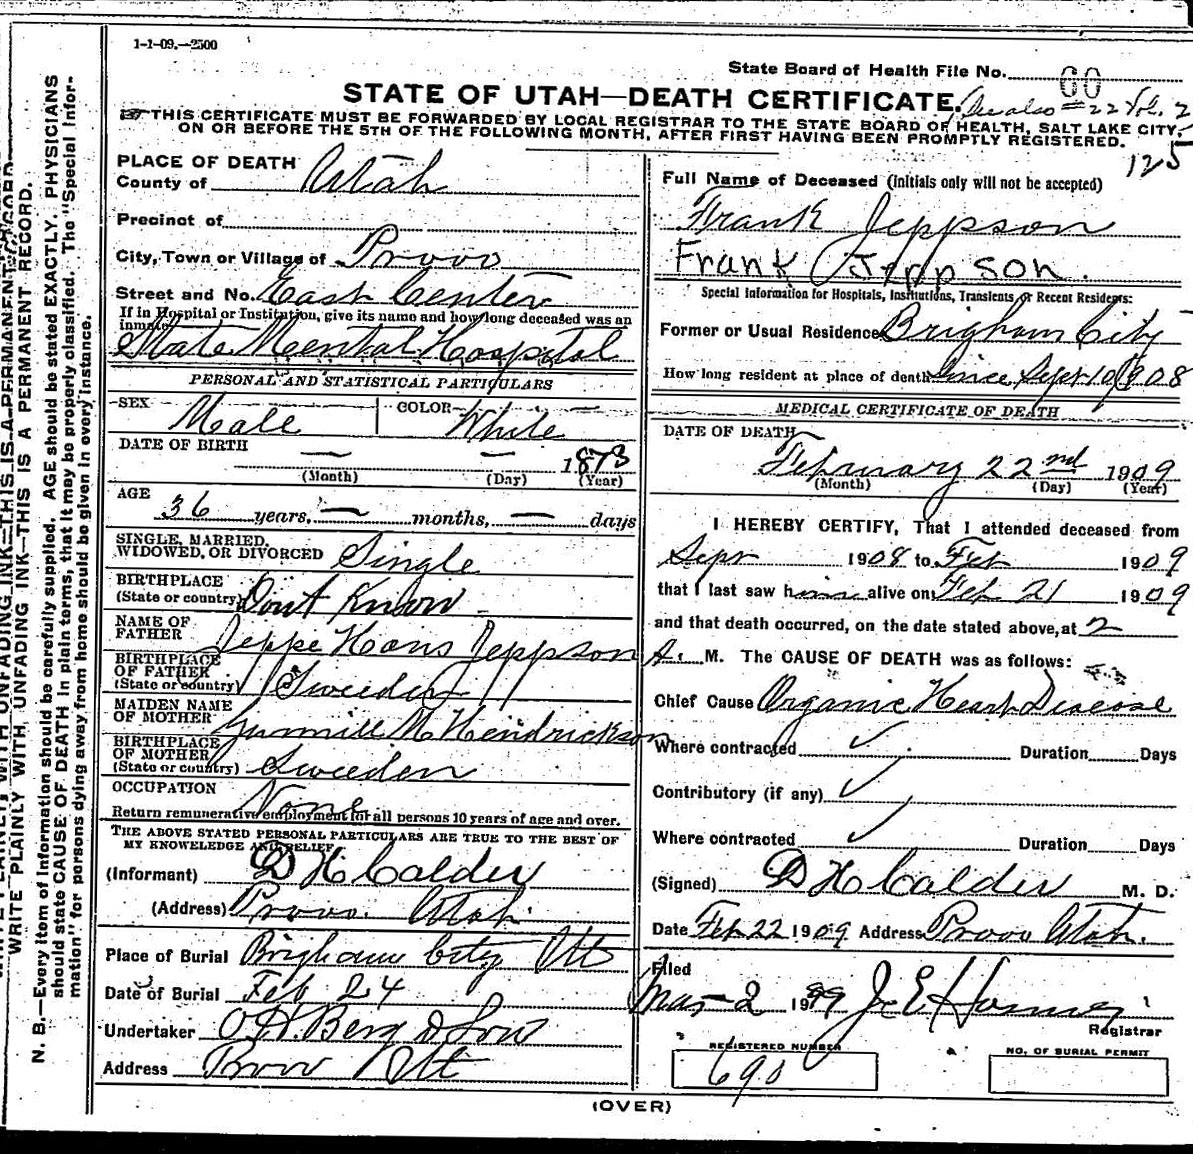 1-1-09.—2500
State Board of Health File No. 60
STATE OF UTAH—DEATH CERTIFICATE.
#22 Vol. 2
THIS CERTIFICATE MUST BE FORWARDED BY LOCAL REGISTRAR TO THE STATE BOARD OF HEALTH, SALT LAKE CITY,
ON OR BEFORE THE 5TH OF THE FOLLOWING MONTH, AFTER FIRST HAVING BEEN PROMPTLY REGISTERED.
125
PLACE OF DEATH
County of Utah
Precinct of
City, Town or Village of Provo
Street and No. East Center
If in Hospital or Institution, give its name and how long deceased was an
inmate
State Mental Hospital
PERSONAL AND STATISTICAL PARTICULARS
SEX Male COLOR White
DATE OF BIRTH — — 1873
(Month) (Day) (Year)
AGE
36 years, — months, — days
SINGLE, MARRIED,
WIDOWED, OR DIVORCED Single
BIRTHPLACE
(State or country) Dont Know
NAME OF
FATHER Jeppe Hans Jeppson
BIRTHPLACE
OF FATHER
(State or country) Sweeden
MAIDEN NAME
OF MOTHER M Hendrickson
BIRTHPLACE
OF MOTHER
(State or country) Sweeden
OCCUPATION None
Return remunerative employment for all persons 10 years of age and over.
THE ABOVE STATED PERSONAL PARTICULARS ARE TRUE TO THE BEST OF
MY KNOWELEDGE AND BELIEF
(Informant) D H Calder
(Address) Provo. Utah.
Place of Burial Brigham City Ut
Date of Burial Feb 24
Undertaker O H. Berg & Son
Address Provo Ut
Full Name of Deceased (Initials only will not be accepted)
Frank Jeppson
Frank Jeppson.
Special Information for Hospitals, Institutions, Transients or Recent Residents:
Former or Usual Residence Brigham City
How long resident at place of death Since Sept 10 1908
MEDICAL CERTIFICATE OF DEATH
DATE OF DEATH
February 22nd 1909
(Month) (Day) (Year)
I HEREBY CERTIFY, That I attended deceased from
Sept 1908 to Feb 1909
that I last saw him alive on Feb 21 1909
and that death occurred, on the date stated above, at 2
A. M. The CAUSE OF DEATH was as follows:
Chief Cause Organic Heart Disease
Where contracted ✓ Duration Days
Contributory (if any) ✓
Where contracted ✓ Duration Days
(Signed) D H Calder M. D.
Date Feb 22 1909 Address Provo Utah.
Filed
Mar 2 1909 J E
Registrar
REGISTERED NUMBER
690
NO. OF BURIAL PERMIT
(OVER)
WRITE PLAINLY, WITH UNFADING INK—THIS IS A PERMANENT RECORD.
N. B.—Every item of information should be carefully supplied. AGE should be stated EXACTLY. PHYSICIANS
should state CAUSE OF DEATH in plain terms, that it may be properly classified. The "Special Infor-
mation" for persons dying away from home should be given in every instance.